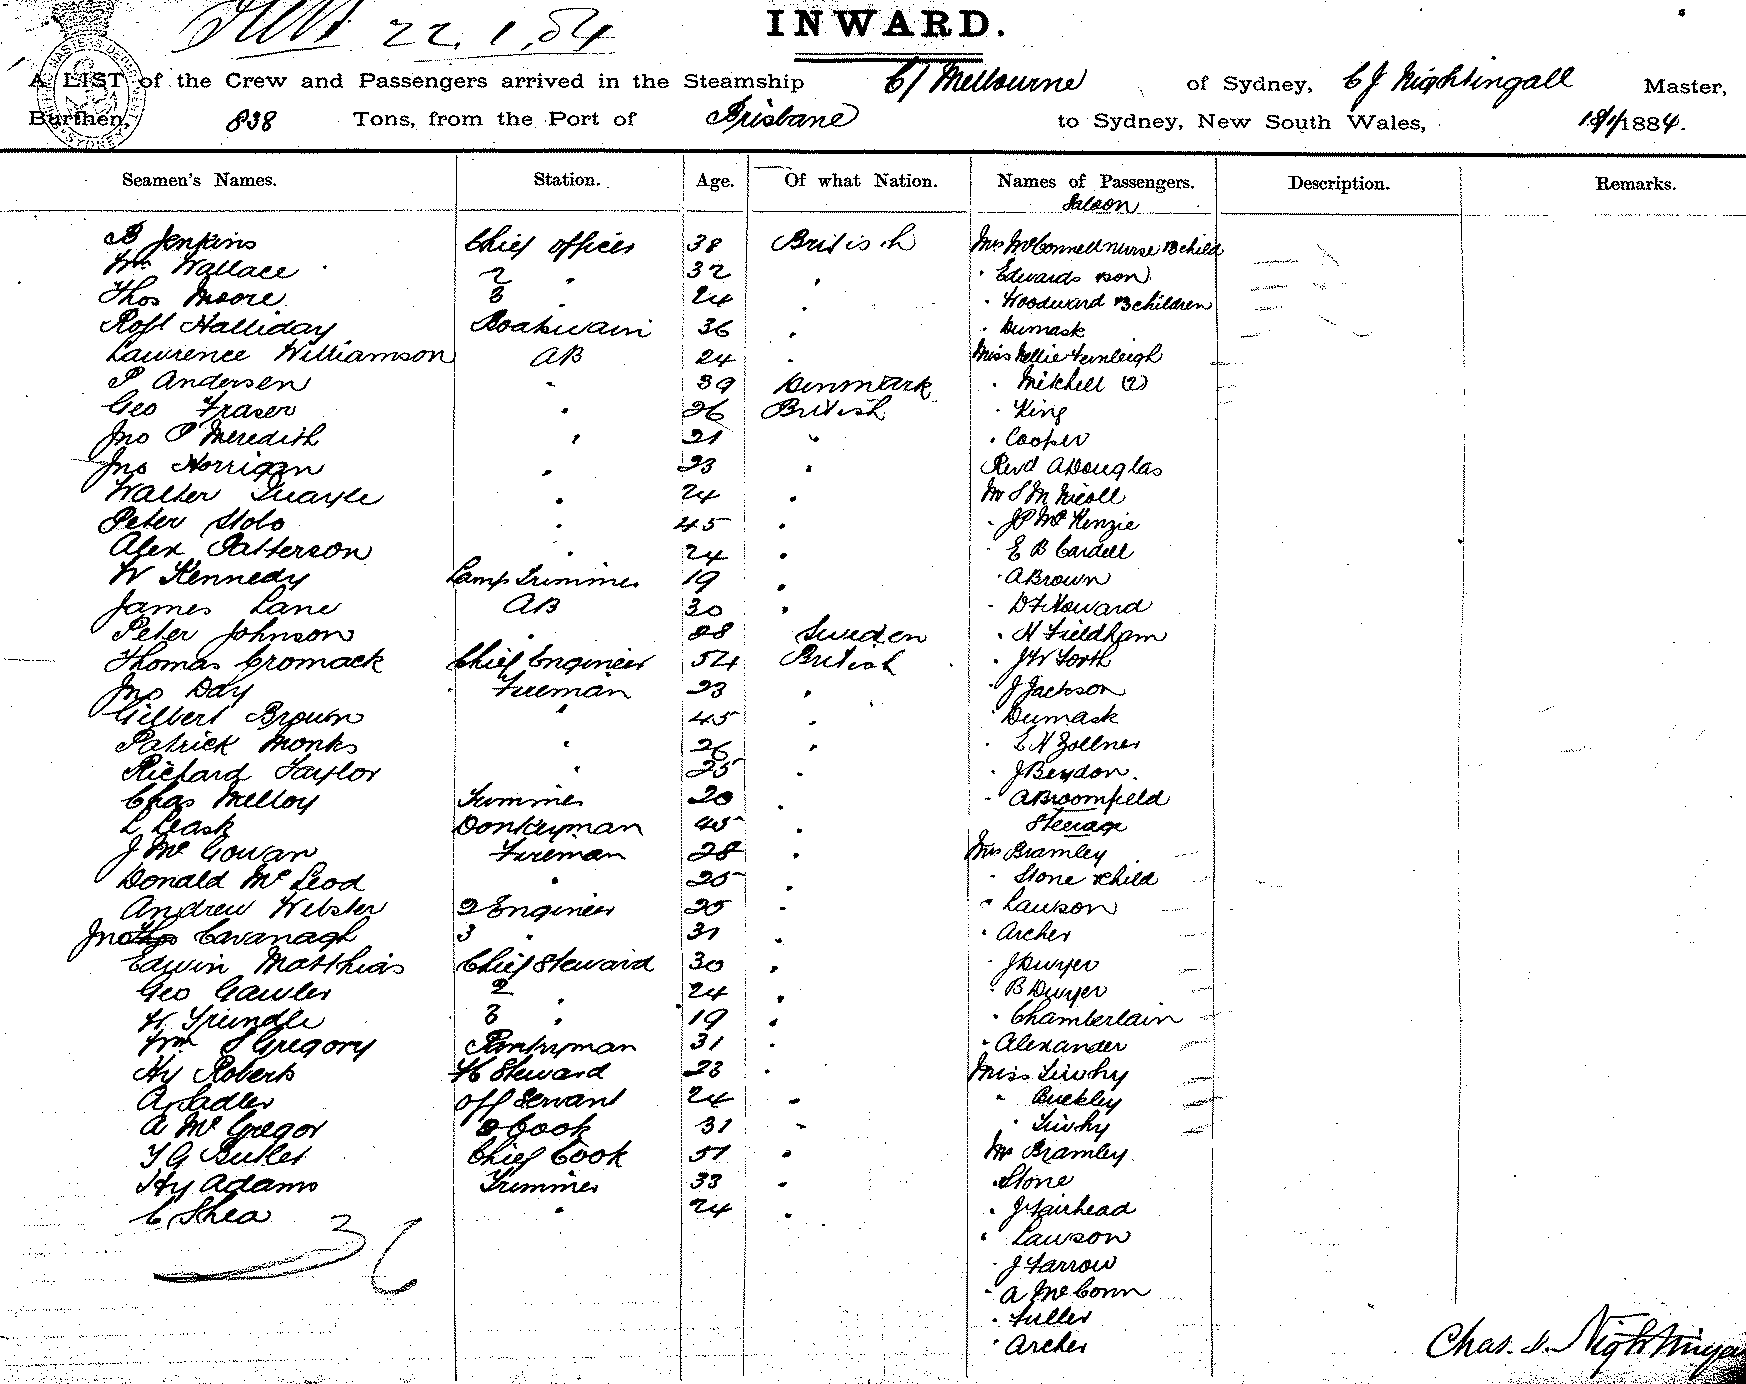 22.1.84
INWARD.
A LIST of the Crew and Passengers arrived in the Steamship C/ Melbourne of Sydney, C J Nightingall Master,
Burthen, 838 Tons, from the Port of Brisbane to Sydney, New South Wales, 18/1/1884.
Seamen's Names. Station. Age. Of what Nation. Names of Passengers. Description. Remarks.
Saloon
B Jenkins Chief officer 38 British Mrs McConnell nurse & child
Wm Wallace 2 " 32 " " Edwards & son
Thos Moore 3 " 24 " " Woodward & 3 children
Robt Halliday Boatswain 36 " " Dumask
Lawrence Williamson AB 24 " Miss Nellie Fernleigh
P Andersen " 39 Denmark " Mitchell (2)
Geo Fraser " 26 British " King
Jno P Meredith " 21 " " Cooper
Jno Horrigan " 23 " Revd A Douglas
Walter Quayle " 24 " Mr S M Nicoll
Peter Slolo " 45 " " J P McKenzie
Alex Patterson " 24 " " E B Cardell
W Kennedy Lamp Trimmer 19 " " A Brown
James Lane AB 30 " " D F Howard
Peter Johnson " 28 Sweden " H Fieldham
Thomas Cromack Chief Engineer 54 British " J W Forth
Jno Day Fireman 23 " " J Jackson
Gilbert Brown " 45 " " Dumask
Patrick Monks " 26 " " L H Zollner
Richard Taylor " 25 " " J Beydon.
Chas Melloy Trimmer 20 " " A Broomfield
Steerage
L Leask Donkeyman 45 "
J McGowan Fireman 28 " Mrs Bramley
Donald McLeod " 25 " " Stone & child
Andrew Webster 2 Engineer 25 " " Lawson
Jno Cavanagh 3 " 31 " " Archer
Edwin Matthias Chief Steward 30 " " J Dwyer
Geo Gawler 2 " 24 " " B Dwyer
H Spindle 3 " 19 " " Chamberlain
Wm S Gregory Pantryman 31 " " Alexander
Hy Roberts F C Steward 23 " Miss Tivohy
A Sadler Off Servant 24 " " Buckley
A McGregor 2 Cook 31 " " Tivohy
T G Butler Chief Cook 51 " Mr Bramley
Hy Adams Trimmer 33 " " Stone
C Shea " 24 " " J Fairhead
36
" Lawson
" J Farrow
" A McConn
" Fuller
" Archer
Chas. J. Nightingall